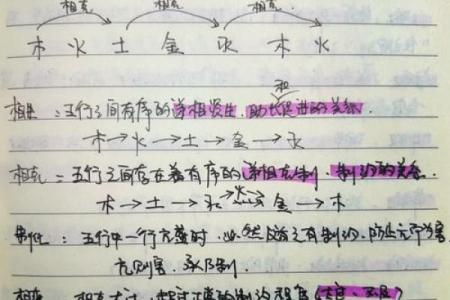 相克 相克 相克
木 火 土 金 水 木 火
和
相生：五行之间有序的递相资生、助长促进的关系.
木→火→土→金→水
相克：五行之间存在着有序的递相克制、制约的关系.
木→土→水→火→金→木
制化：五行中一行亢盛时，必然随之有制约，防止亢而为害
亢则害，承乃制.
相乘：相克太过，超过正常的制约程度（太过、不及）